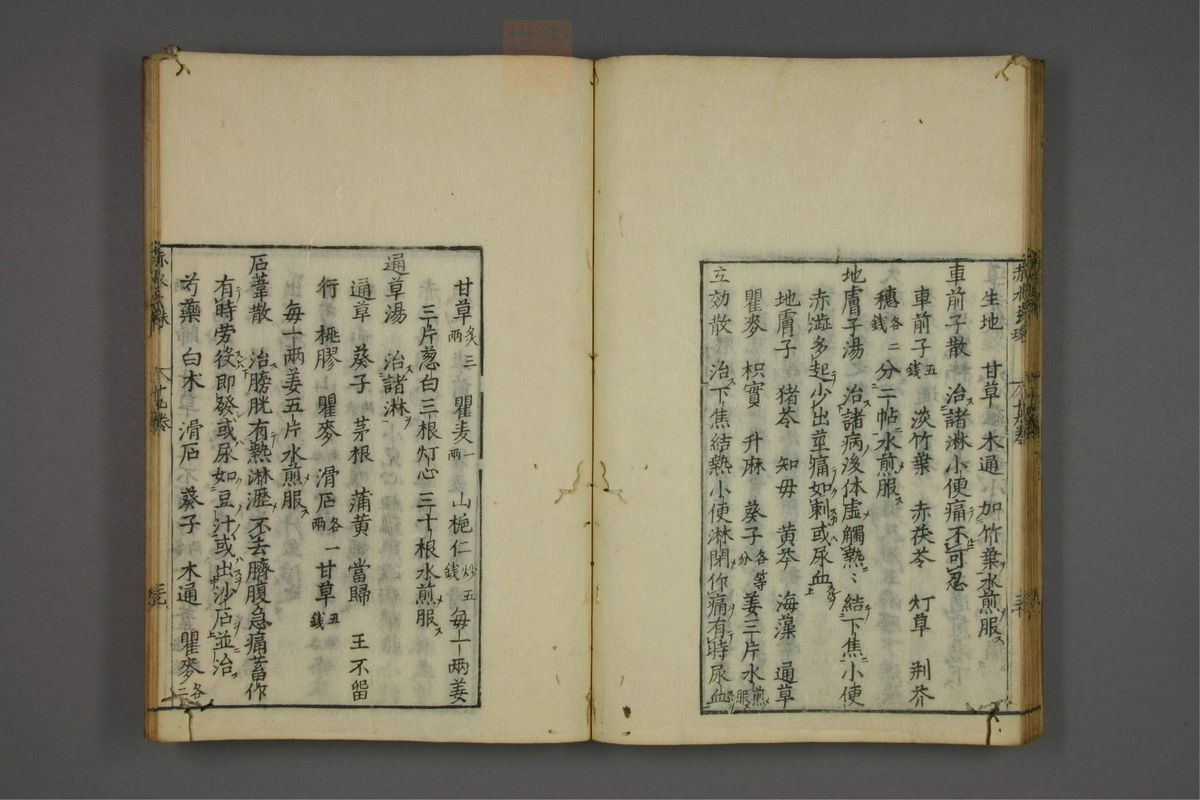 生地 甘草 木通 加竹葉水煎服
車前子散 治諸淋小便痛不可忍
車前子五錢 淡竹葉 赤茯苓 灯草 荆芥
穗各二錢 分二帖水煎服
地膚子湯 治諸病後体虛觸熱〻結下焦小便
赤澁多起少出並痛如刺或尿血
地膚子 猪苓 知毋 黄芩 海藻 通草
瞿麥 枳實 升麻 葵子各等分 姜三片水煎服
立効散 治下焦結熱小便淋閉作痛有時尿血
甘草炙三兩 瞿麦一兩 山梔仁炒五錢 毎一兩姜
三片葱白三根灯心三十根水煎服
通草湯 治諸淋
通草 葵子 茅根 蒲黄 當帰 王不留
行 桃膠 瞿麥 滑石各一兩 甘草五錢
毎一兩姜五片水煎服
石葦散 治膀胱有熱淋瀝不去臍腹急痛蓄作
有時劳役即發或尿如豆汁或出沙石並治
芍藥 白朮 滑石 葵子 木通 瞿麥各二